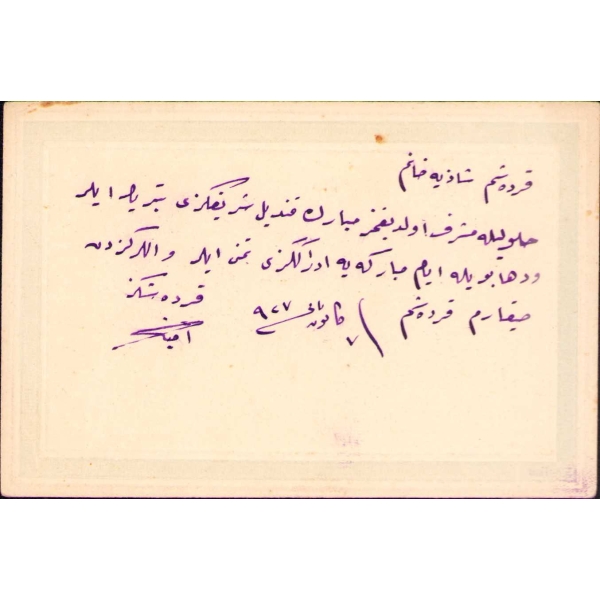 قرده شم شاذیه خانم
حلولیله مشرف اولدیغمز مبارك قندیل شریفكزی تبریك ایلر
ودها بویله ایام مباركه یه ادراككزی تمنی ایلر واللركزدن
صیقارم قرده شم ٧ كانون ثانی ٩٢٧
قرده شكز